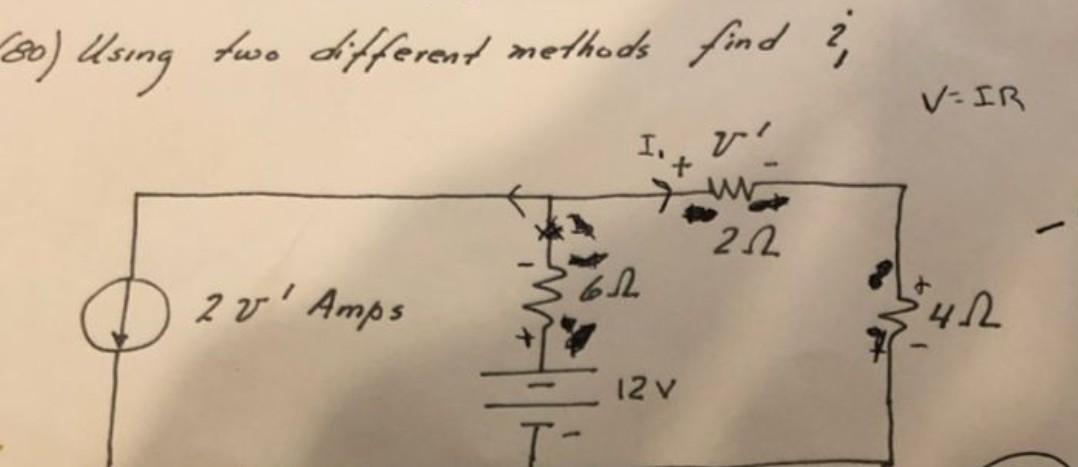 (80) Using two different methods find i,
V=IR
I. + v' -
2Ω
-
6Ω
+
2 v' Amps
+
4Ω
-
12 V
-